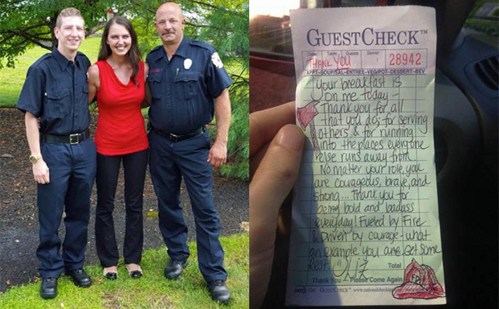 GUESTCHECK™
Date Table Guests Server
THANK YOU
28942
APPT-SOUP/SAL-ENTREE-VEG/POT-DESSERT-BEV
Your breakfast is
on me today -
Thank you for all
that you do; for serving
others & for running
into the places everyone
else runs away from.
No matter your role, you
are courageous, brave, and
strong... Thank you for
being bold and badass
everyday! Fueled by Fire
& Driven by courage - what
an example you are. Get some
Rest. Liz
Total
Thank You - Please Come Again